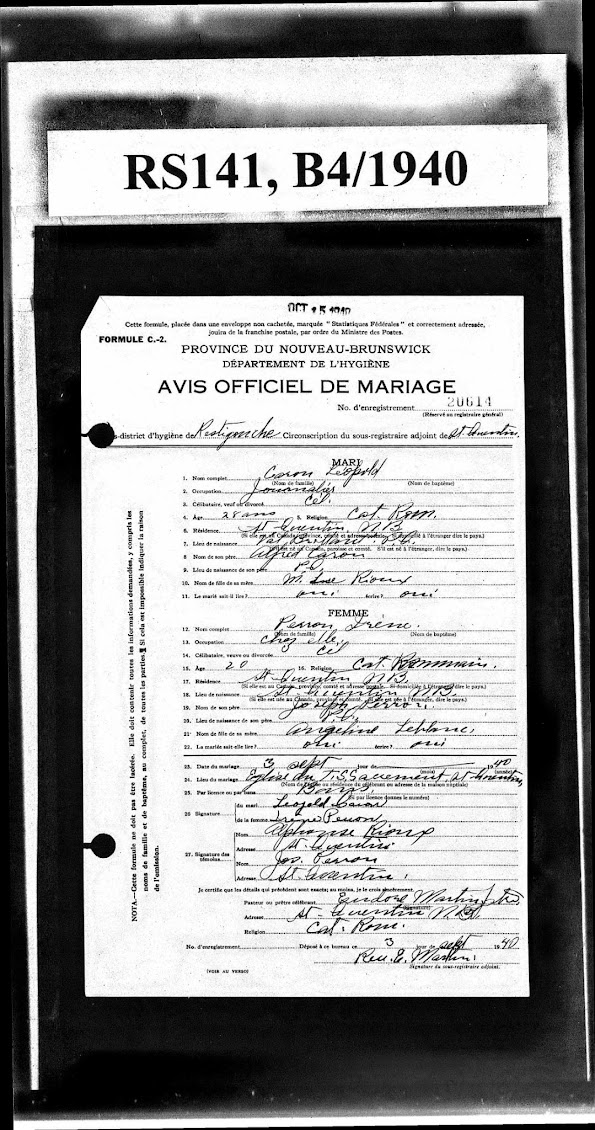 RS141, B4/1940
OCT 15 1940
Cette formule, placée dans une enveloppe non cachetée, marquée "Statistiques Fédérales" et correctement adressée,
jouira de la franchise postale, par ordre du Ministre des Postes.
FORMULE C.-2.
PROVINCE DU NOUVEAU-BRUNSWICK
DÉPARTEMENT DE L'HYGIÈNE
AVIS OFFICIEL DE MARIAGE
No. d'enregistrement 20614
(Réservé au registraire général)
s-district d'hygiène de Restigouche Circonscription du sous-registraire adjoint de St. Quentin.
MARI
1. Nom complet Caron Léopold
(Nom de famille) (Nom de baptême)
2. Occupation Journalier
3. Célibataire, veuf ou divorcé Cel.
4. Age 28 ans 5. Religion Cat. Rom.
6. Résidence St Quentin N.B.
(Si elle est au Canada, province, comté et adresse postale. Si domicilié à l'étranger, dire le pays.)
7. Lieu de naissance Val Brillant P.Q.
(S'il est né au Canada, paroisse et comté. S'il est né à l'étranger, dire le pays.)
8. Nom de son père Alfred Caron
9. Lieu de naissance de son père P.Q.
10. Nom de fille de sa mère M. Rioux
11. Le marié sait-il lire? oui écrire? oui
FEMME
12. Nom complet Perron Irène.
(Nom de famille) (Nom de baptême)
13. Occupation Chez elle,
14. Célibataire, veuve ou divorcée Cel
15. Age 20 16. Religion Cat. Rommain.
17. Résidence St-Quentin N.B.
(Si elle est au Canada, province, comté et adresse postale. Si domiciliée à l'étranger, dire le pays.)
18. Lieu de naissance St Quentin N.B.
(Si elle est née au Canada, paroisse et comté. Si elle est née à l'étranger, dire le pays.)
19. Nom de son père Joseph Perron
20. Lieu de naissance de son père P.Q.
21. Nom de fille de sa mère Angéline Leblanc,
22. La mariée sait-elle lire? oui écrire? oui
23. Date du mariage 3 sept jour de 1940
(mois) (année)
24. Lieu du mariage Eglise du T.S. Sacrement St Quentin
(Nom de l'église ou résidence du célébrant ou adresse de la maison nuptiale)
25. Par licence ou par bans Bans
(Si par licence donnez le numéro)
26 Signature du mari Léopold Caron
de la femme Irène Perron
27. Signature des témoins Nom Alphonse Rioux
Adresse St. Quentin
Nom Jos. Perron
Adresse St. Quentin.
Je certifie que les détails qui précèdent sont exacts; au moins, je le crois sincèrement.
Pasteur ou prêtre célébrant Eudore Martin ptre
(Signature)
Adresse St-Quentin N.B.
Religion Cat. Rom.
No. d'enregistrement Déposé à ce bureau ce 3 jour de sept 1940
Rev. E. Martin.
Signature du sous-registraire adjoint.
(VOIR AU VERSO)
NOTA.—Cette formule ne doit pas être lacérée. Elle doit contenir toutes les informations demandées, y compris les
noms de famille et de baptême, au complet, de toutes les parties. Si cela est impossible indiquer la raison
de l'omission.